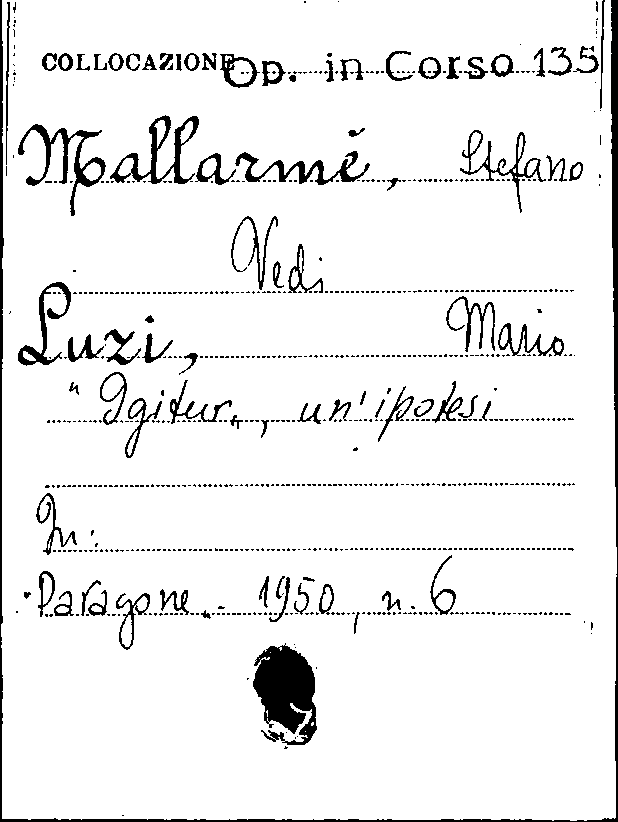 COLLOCAZIONE Op. in Corso 135
Mallarmé, Stefano
Vedi
Luzi, Mario
"Igitur", un'ipotesi
In:
"Paragone". 1950, n. 6